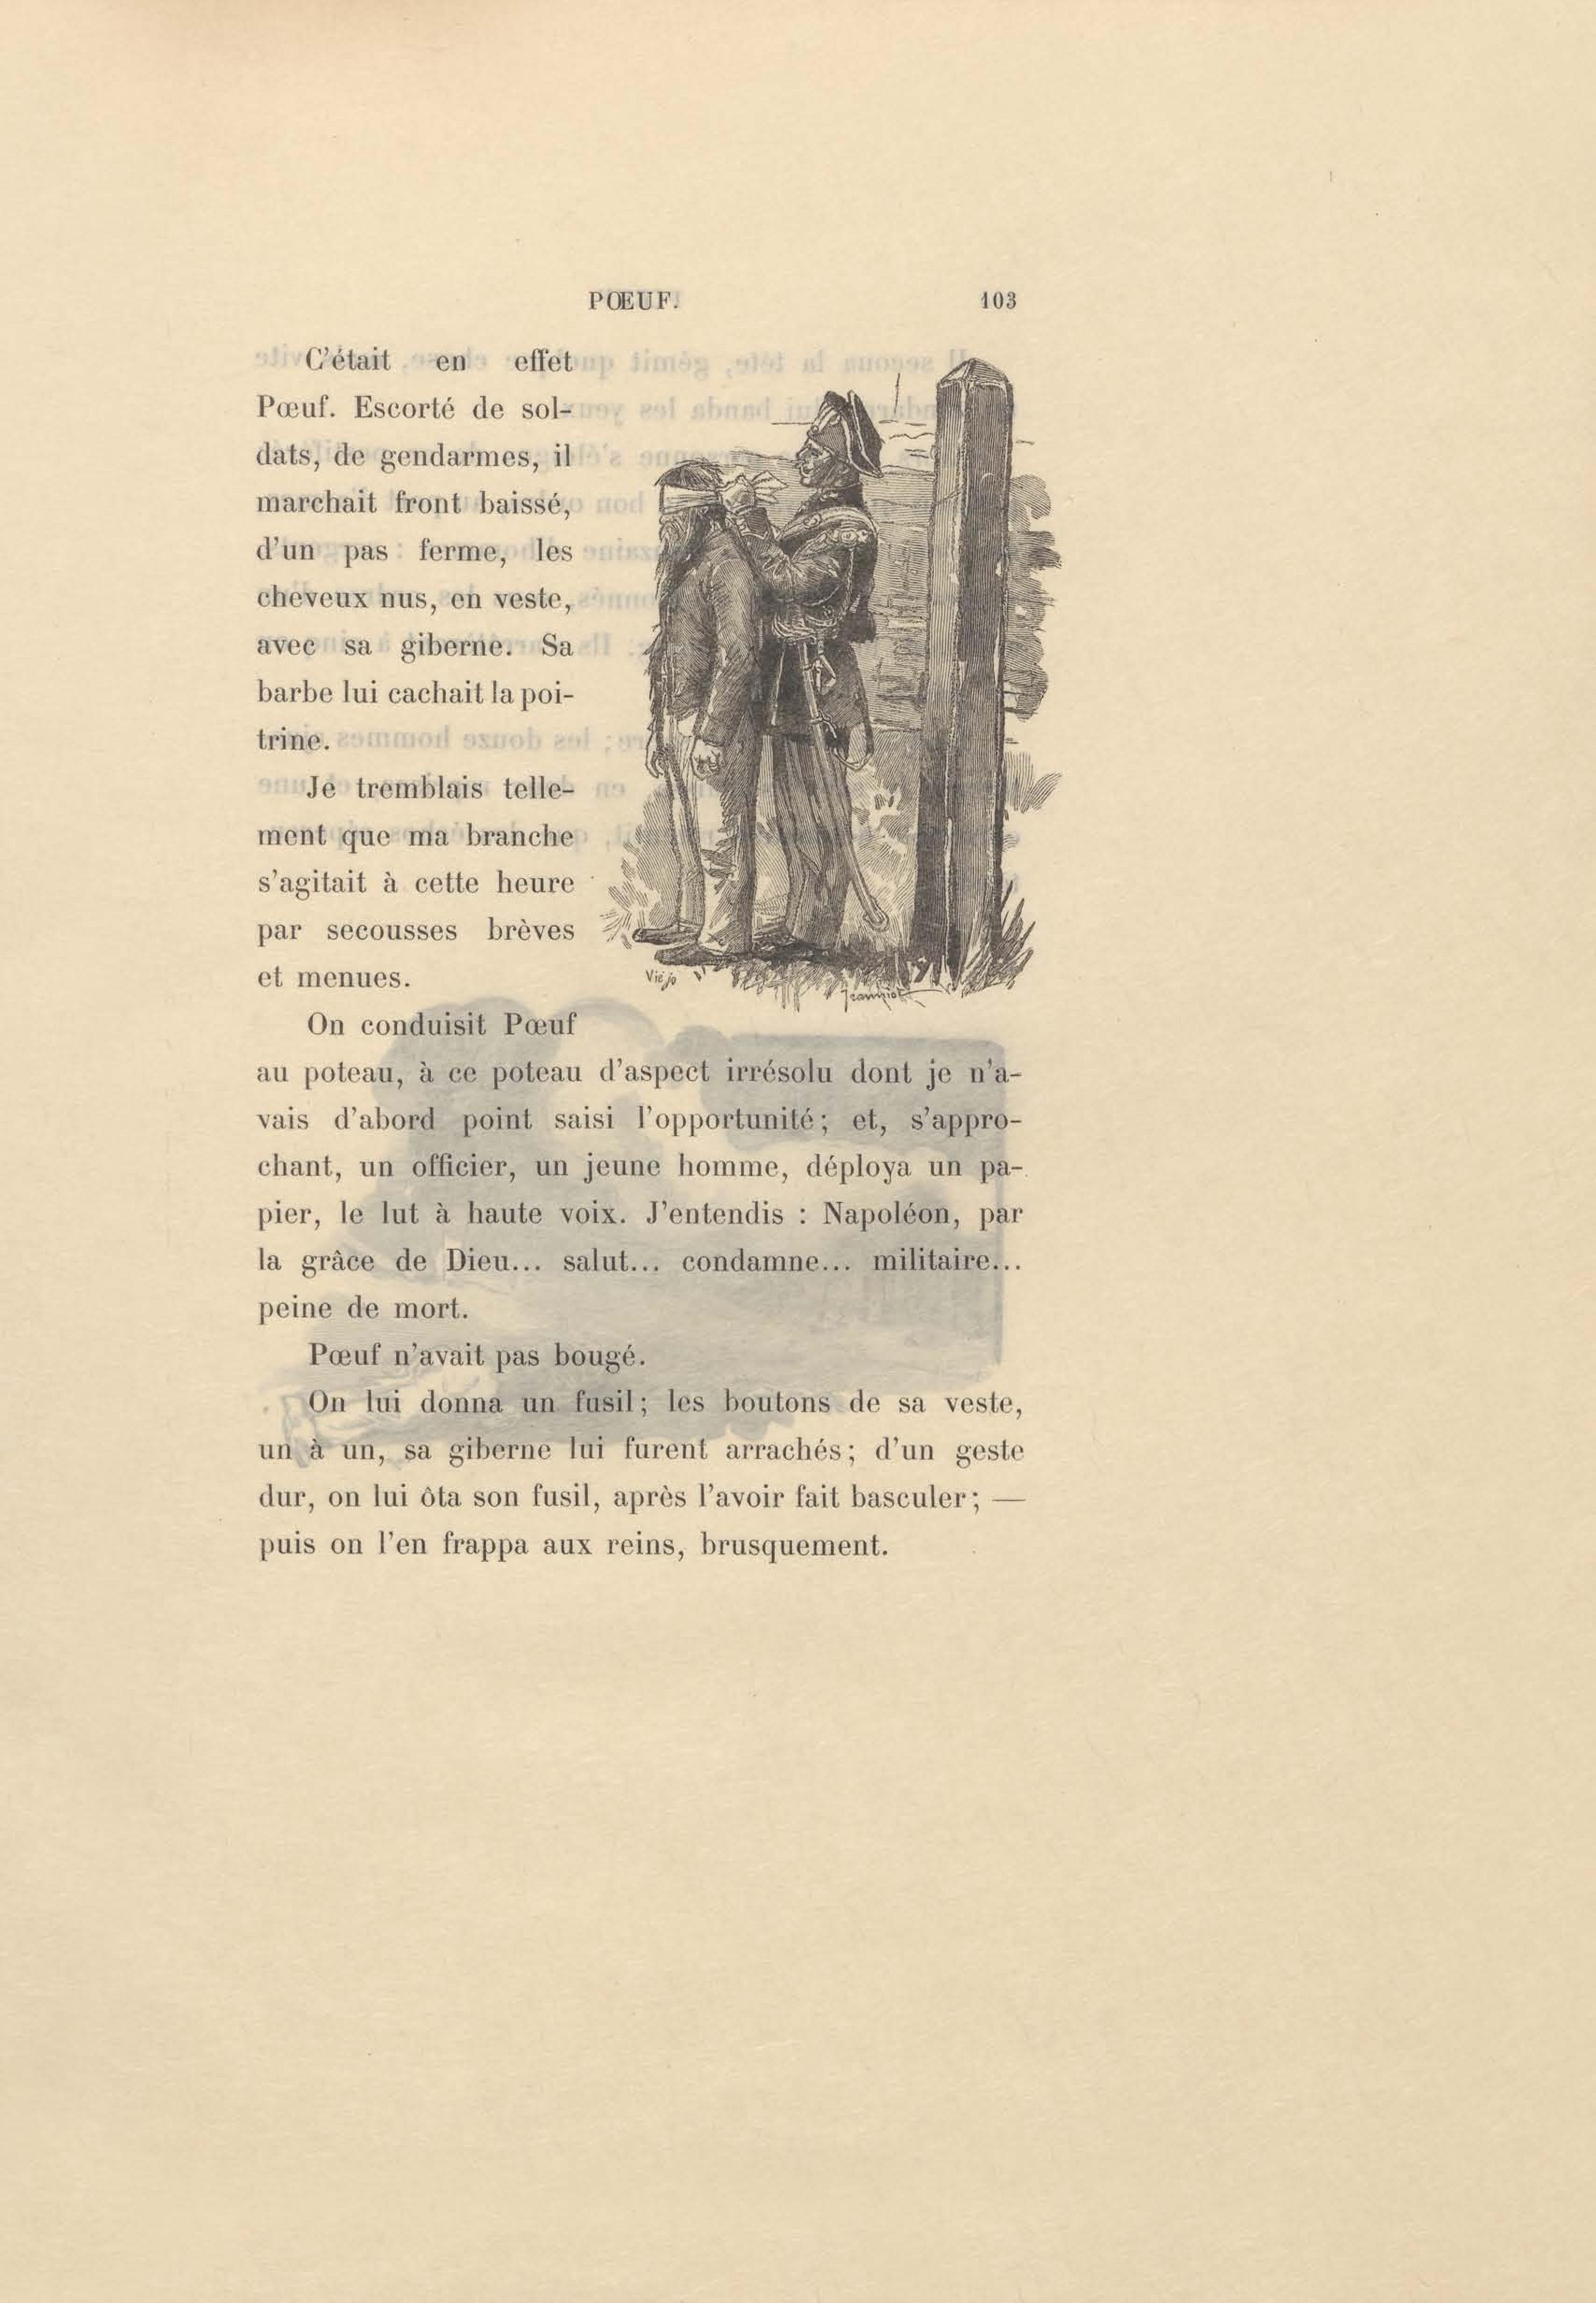 PŒUF.
103
C'était en effet
Pœuf. Escorté de sol-
dats, de gendarmes, il
marchait front baissé,
d'un pas ferme, les
cheveux nus, en veste,
avec sa giberne. Sa
barbe lui cachait la poi-
trine.
Je tremblais telle-
ment que ma branche
s'agitait à cette heure
par secousses brèves
et menues.
Viejo
Jeanniot
On conduisit Pœuf
au poteau, à ce poteau d'aspect irrésolu dont je n'a-
vais d'abord point saisi l'opportunité; et, s'appro-
chant, un officier, un jeune homme, déploya un pa-
pier, le lut à haute voix. J'entendis : Napoléon, par
la grâce de Dieu... salut... condamne... militaire...
peine de mort.
Pœuf n'avait pas bougé.
On lui donna un fusil; les boutons de sa veste,
un à un, sa giberne lui furent arrachés; d'un geste
dur, on lui ôta son fusil, après l'avoir fait basculer; —
puis on l'en frappa aux reins, brusquement.